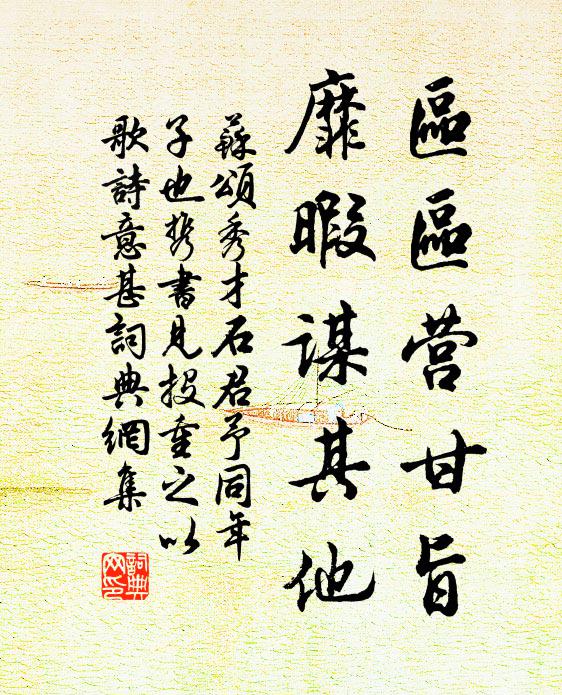 區區营甘旨
靡暇谋其他
蘇頌秀才石君予同年
子也携書見投重之以
歌詩意甚詞典網集
詞典网印